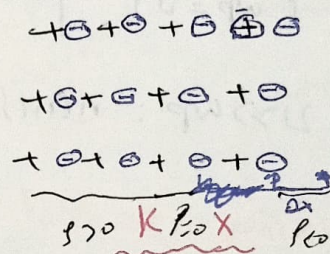 +⊖+⊖+⊖+⊖
+⊖+⊖+⊖+⊖
+⊖+⊖+⊖+⊖
Δx
ρ>0 K ρ=0 X ρ<0